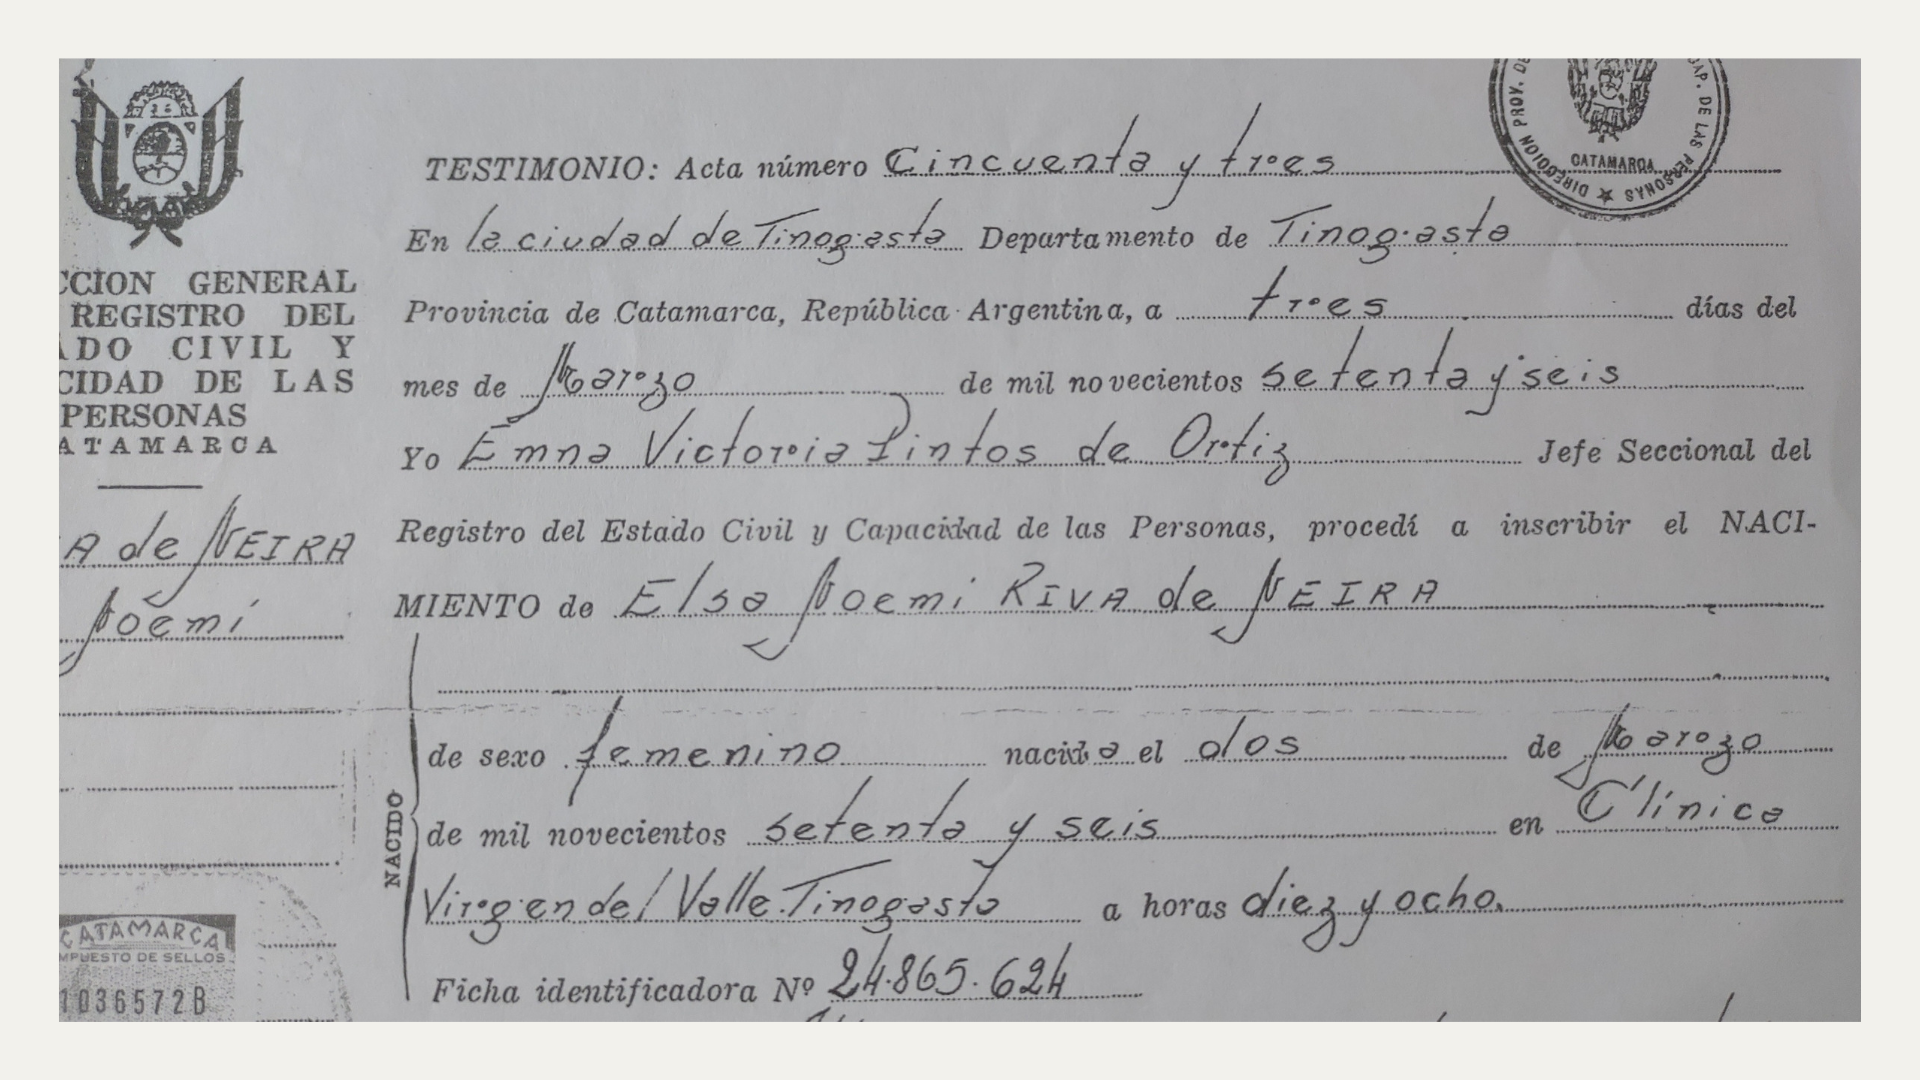 CCION GENERAL
REGISTRO DEL
ADO CIVIL Y
CIDAD DE LAS
PERSONAS
ATAMARCA
A de NEIRA
Noemí
CATAMARCA
MPUESTO DE SELLOS
1036572B
DIRECCION PROV. DE
CAP. DE LAS PERSONAS
CATAMARCA
TESTIMONIO: Acta número Cincuenta y tres
En la ciudad de Tinogasta Departamento de Tinogasta
Provincia de Catamarca, República Argentina, a tres días del
mes de Marzo de mil novecientos setenta y seis
Yo Emna Victoria Pintos de Ortiz Jefe Seccional del
Registro del Estado Civil y Capacidad de las Personas, procedí a inscribir el NACI-
MIENTO de Elsa Noemí RIVA de NEIRA
NACIDO
de sexo femenino nacida el dos de Marzo
de mil novecientos setenta y seis en Clínica
Virgen del Valle Tinogasta a horas diez y ocho.
Ficha identificadora Nº 24.865.624